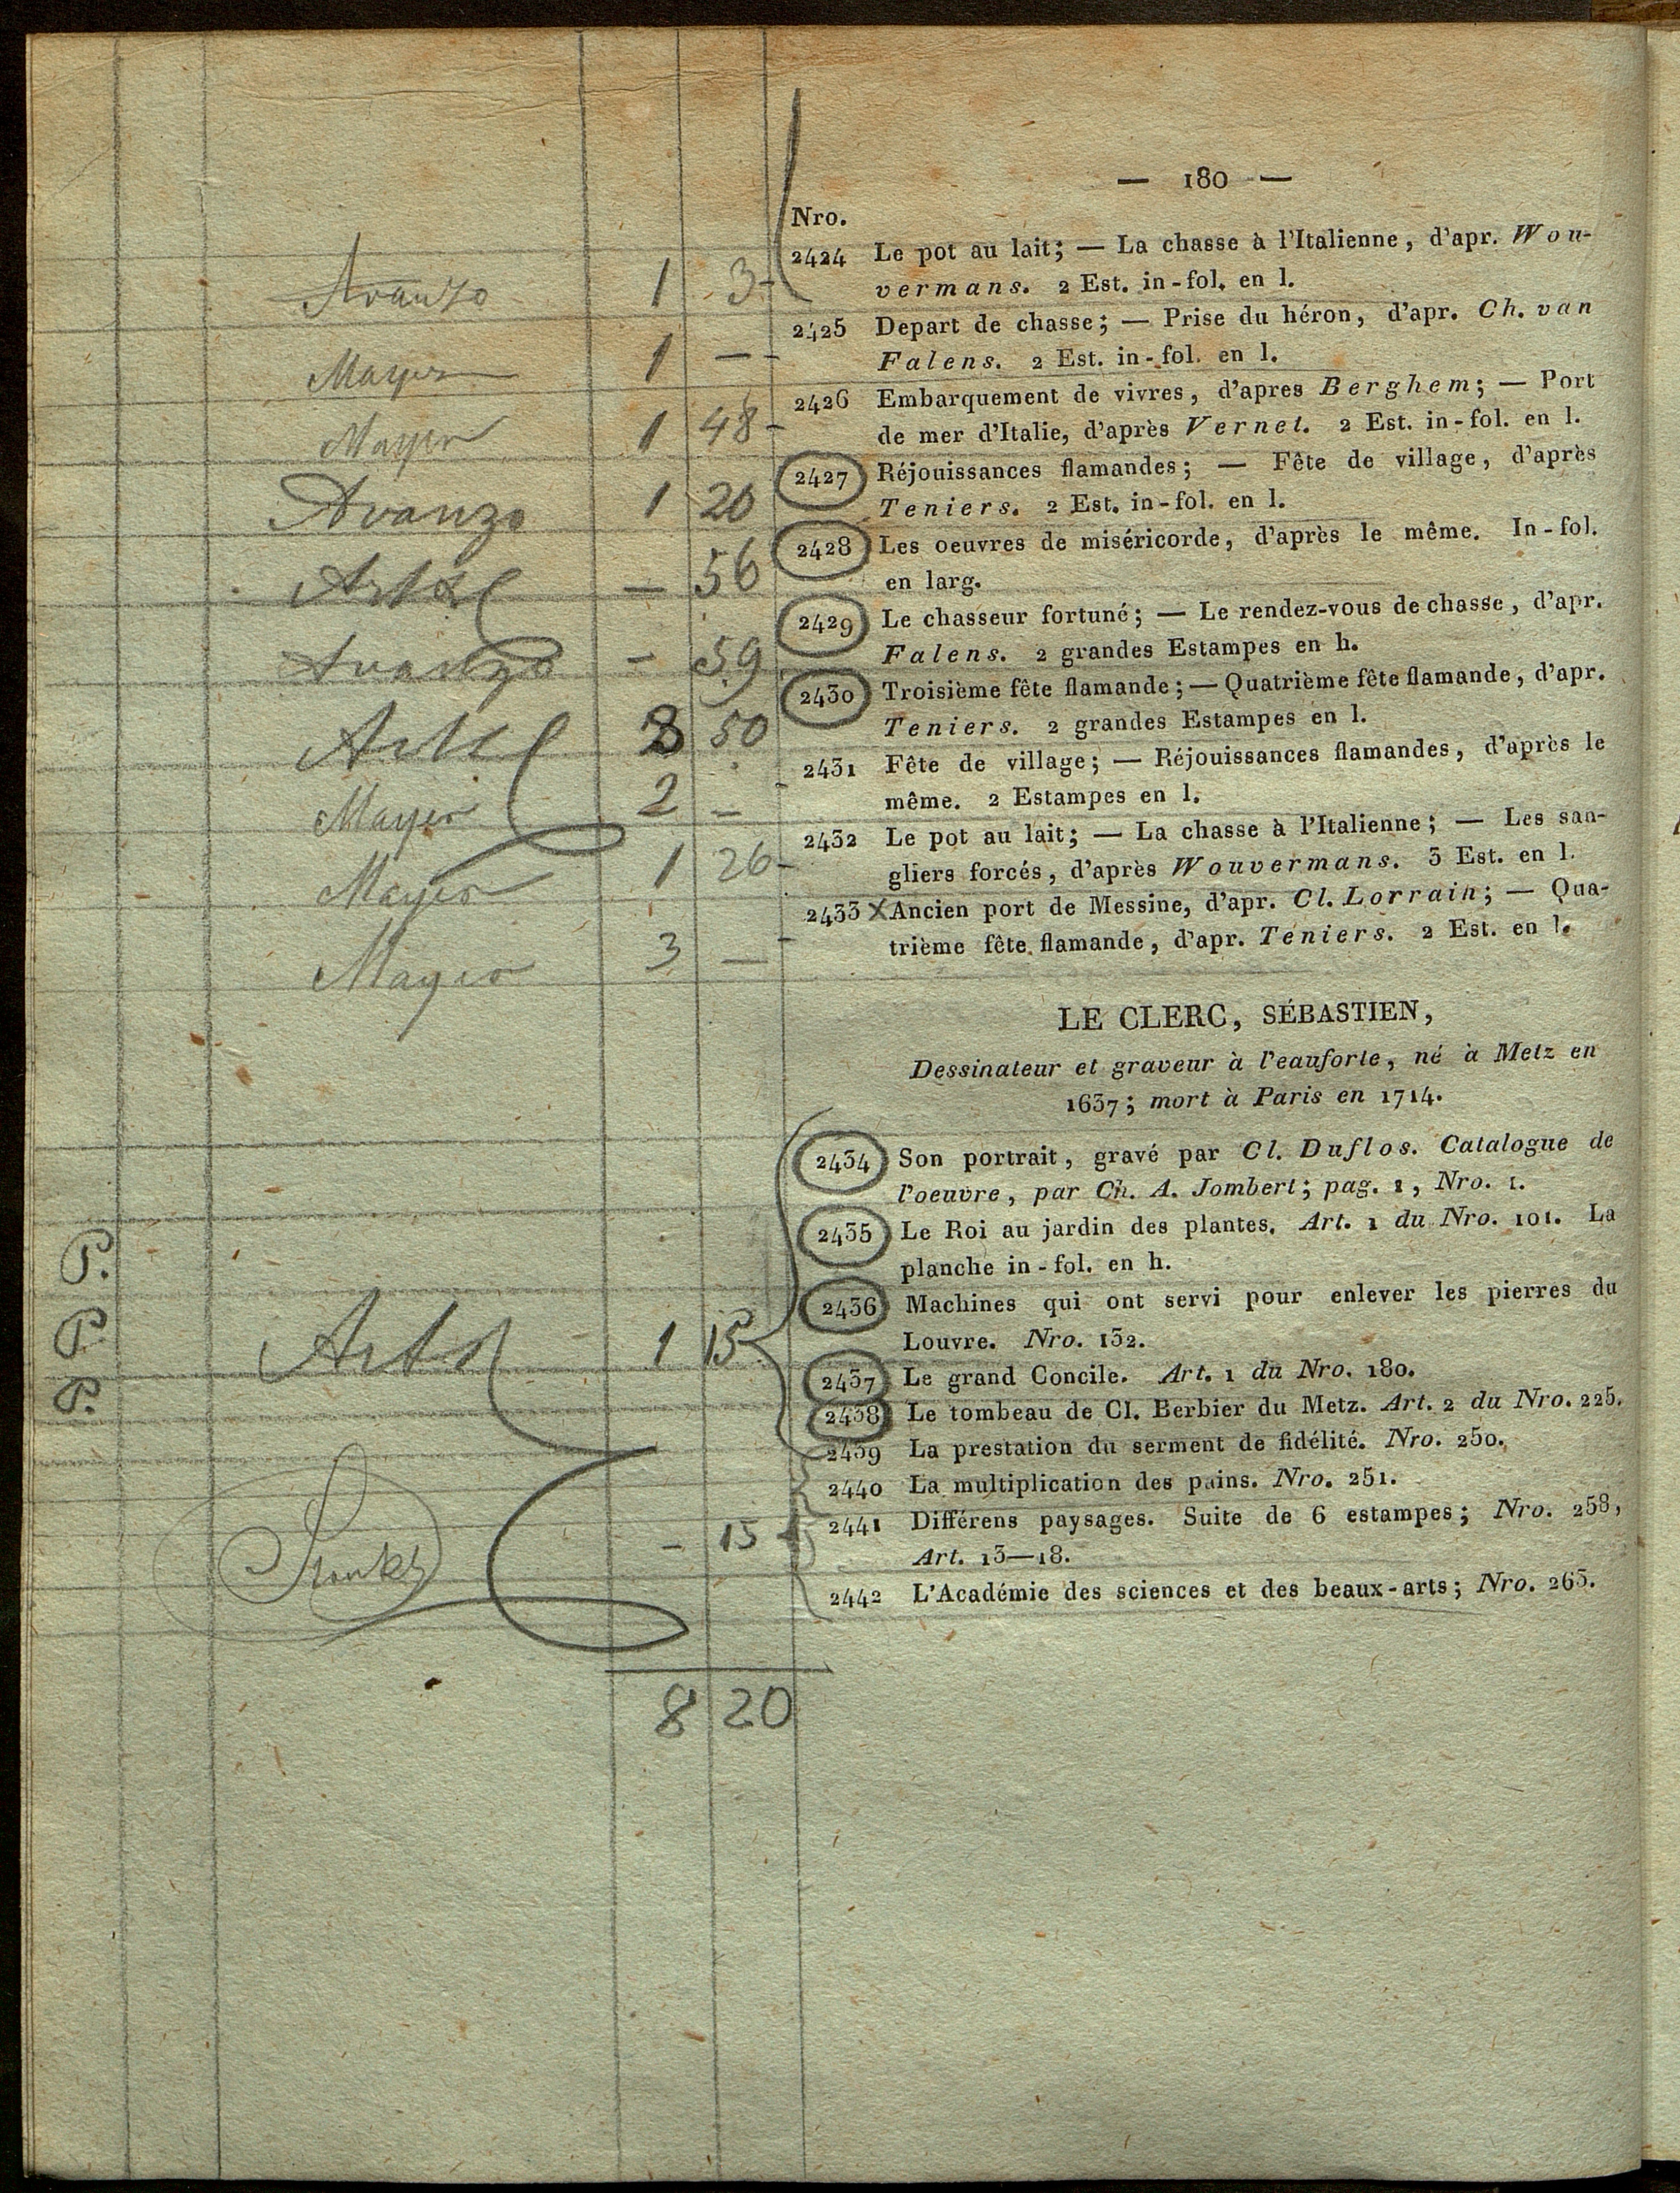 — 180 —
Nro.
2424 Le pot au lait; — La chasse à l'Italienne, d'apr. Wou-
vermans. 2 Est. in-fol. en l.
Avanzo 1 3-
2425 Depart de chasse; — Prise du héron, d'apr. Ch. van
Falens. 2 Est. in-fol. en l.
Mayer 1 —
2426 Embarquement de vivres, d'apres Berghem; — Port
de mer d'Italie, d'après Vernet. 2 Est. in-fol. en l.
Mayer 1 48-
2427 Réjouissances flamandes; — Fête de village, d'après
Teniers. 2 Est. in-fol. en l.
Avanzo 1 20
2428 Les oeuvres de miséricorde, d'après le même. In-fol.
en larg.
— 56
2429 Le chasseur fortuné; — Le rendez-vous de chasse, d'apr.
Falens. 2 grandes Estampes en h.
Avanzo — 59
2430 Troisième fête flamande; — Quatrième fête flamande, d'apr.
Teniers. 2 grandes Estampes en l.
50
2431 Fête de village; — Réjouissances flamandes, d'après le
même. 2 Estampes en l.
Mayer 2 —
2432 Le pot au lait; — La chasse à l'Italienne; — Les san-
gliers forcés, d'après Wouvermans. 3 Est. en l.
Mayer 1 26-
2433 X Ancien port de Messine, d'apr. Cl. Lorrain; — Qua-
trième fête flamande, d'apr. Teniers. 2 Est. en l.
Mayer 3 —
LE CLERC, SÉBASTIEN,
Dessinateur et graveur à l'eauforte, né à Metz en
1637; mort à Paris en 1714.
2434 Son portrait, gravé par Cl. Duflos. Catalogue de
l'oeuvre, par Ch. A. Jombert; pag. 1, Nro. 1.
2435 Le Roi au jardin des plantes. Art. 1 du Nro. 101. La
planche in-fol. en h.
P.
2436 Machines qui ont servi pour enlever les pierres du
Louvre. Nro. 132.
P. 1 15
2437 Le grand Concile. Art. 1 du Nro. 180.
P.
2438 Le tombeau de Cl. Berbier du Metz. Art. 2 du Nro. 225.
2439 La prestation du serment de fidélité. Nro. 250.
2440 La multiplication des pains. Nro. 251.
2441 Différens paysages. Suite de 6 estampes; Nro. 258,
Art. 13—18.
— 15
2442 L'Académie des sciences et des beaux-arts; Nro. 263.
8 20